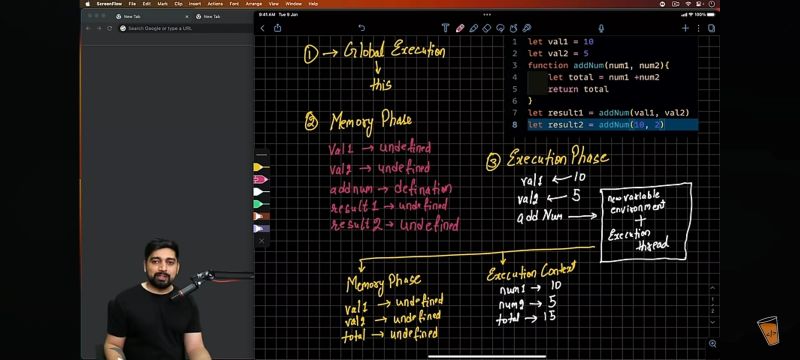 ScreenFlow File Edit Mark Clip Insert Actions Font Arrange View Window Help
New Tab
New Tab
Search Google or type a URL
9:41 AM Tue 9 Jan
① → Global Execution
↓
this
② Memory Phase
val1 → undefined
val2 → undefined
addnum → defination
result1 → undefined
result2 → undefined
1 let val1 = 10
2 let val2 = 5
3 function addNum(num1, num2){
4 let total = num1 +num2
5 return total
6 }
7 let result1 = addNum(val1, val2)
8 let result2 = addNum(10, 2)
③ Execution Phase
val1 ← 10
val2 ← 5
add Num →
new variable
environment
+
Execution
thread
Memory Phase
val1 → undefined
val2 → undefined
total → undefined
Execution Context
num1 → 10
num2 → 5
total → 15